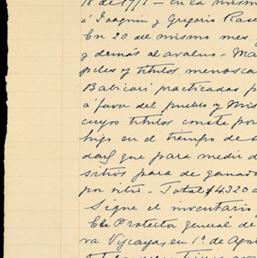 18 de 1771 — en la mism
á Joaquin y Gregorio Ras
En 20 del mismo mes
y demás al avaluo — Ma
peles y titulos menosca
Babicari practicadas p
á favor del pueblo y Mis
cuyo titulos conste por
higo en el tiempo de
que para medir d
sitios para de ganad
por sitio — Total $4320
Sigue el inventario
El Protector general de
va Vizcaya en 1º de Ago